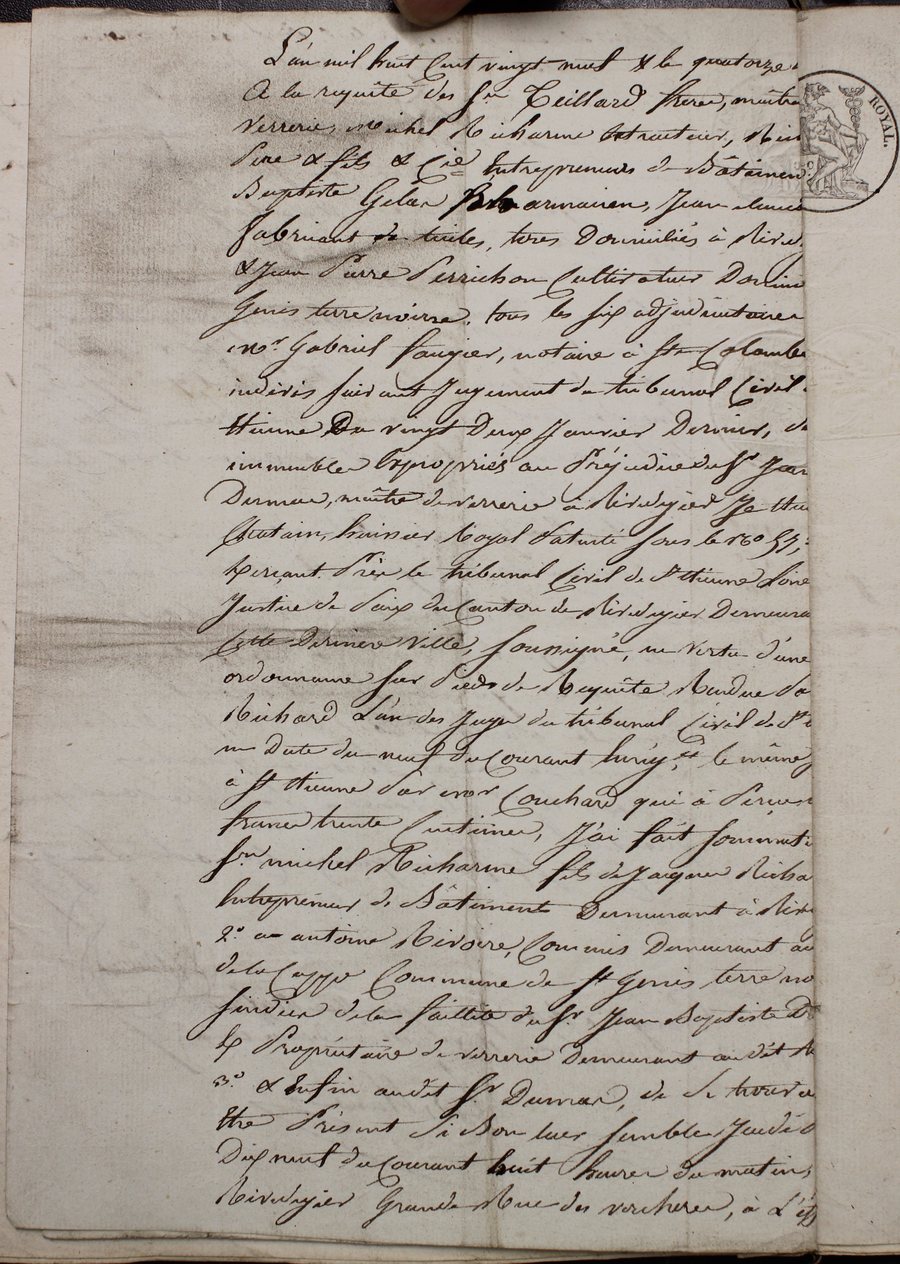 L'an mil huit Cent vingt neuf & le quatorze
A la requête des Srs Teillard freres, maître
verrerie, michel Richarme Structeur, Rich
Pere & fils & Cie Entrepreneurs de Bâtimen
Baptiste Gelas Pharmacien, Jean
fabricant de tuiles, tous Domiciliés à Rive
& Jean Pierre Perrichon Cultivateur Domici
Genis terre noirre, tous les six adjudicataires
me Gabriel faugier, notaire à Ste Colombe
indivis suivant Jugement du tribunal Civil
Etienne Du vingt Deux Janvier Dernier,
immeubles Expropriés au Préjudice du Sr Jean
Dumas, maître de verrerie à Rivedegier Je
huissier Royal Patenté sous le No 57,
Exercant Près le tribunal Civil de St Etienne
Justice de Paix du Canton de Rivedegier Demeura
Cette Derniere ville, soussigné, en vertu d'une
ordonnance sur Pieds de Requête Rendue Pa
Richard L'un des Juges du tribunal Civil de St
en Date du neuf du Courant Enrég.ée le même
à St Etienne Par mor Couchard qui à Perçu
francs trente Centimes, J'ai fait sommati
Sr michel Richarme fils de Jacques Richa
Entrepreneur de Bâtiments Demeurant à Rive
2.o a antoine Rivoire, Commis Demeurant au
de la Cappe Commune de St Genis terre no
sindic de la faillite du Sr Jean Baptiste D
Ex Propriétaire de verrerie Demeurant au dit R
3.o & Enfin audit Sr Dumas, de se trouver
Etre Présent Si Bon leur semble, Jeudi
Dix neuf du Courant huit heures du matin,
Rivedegier Grande Rue des vercheres, à L'é
ROYAL.